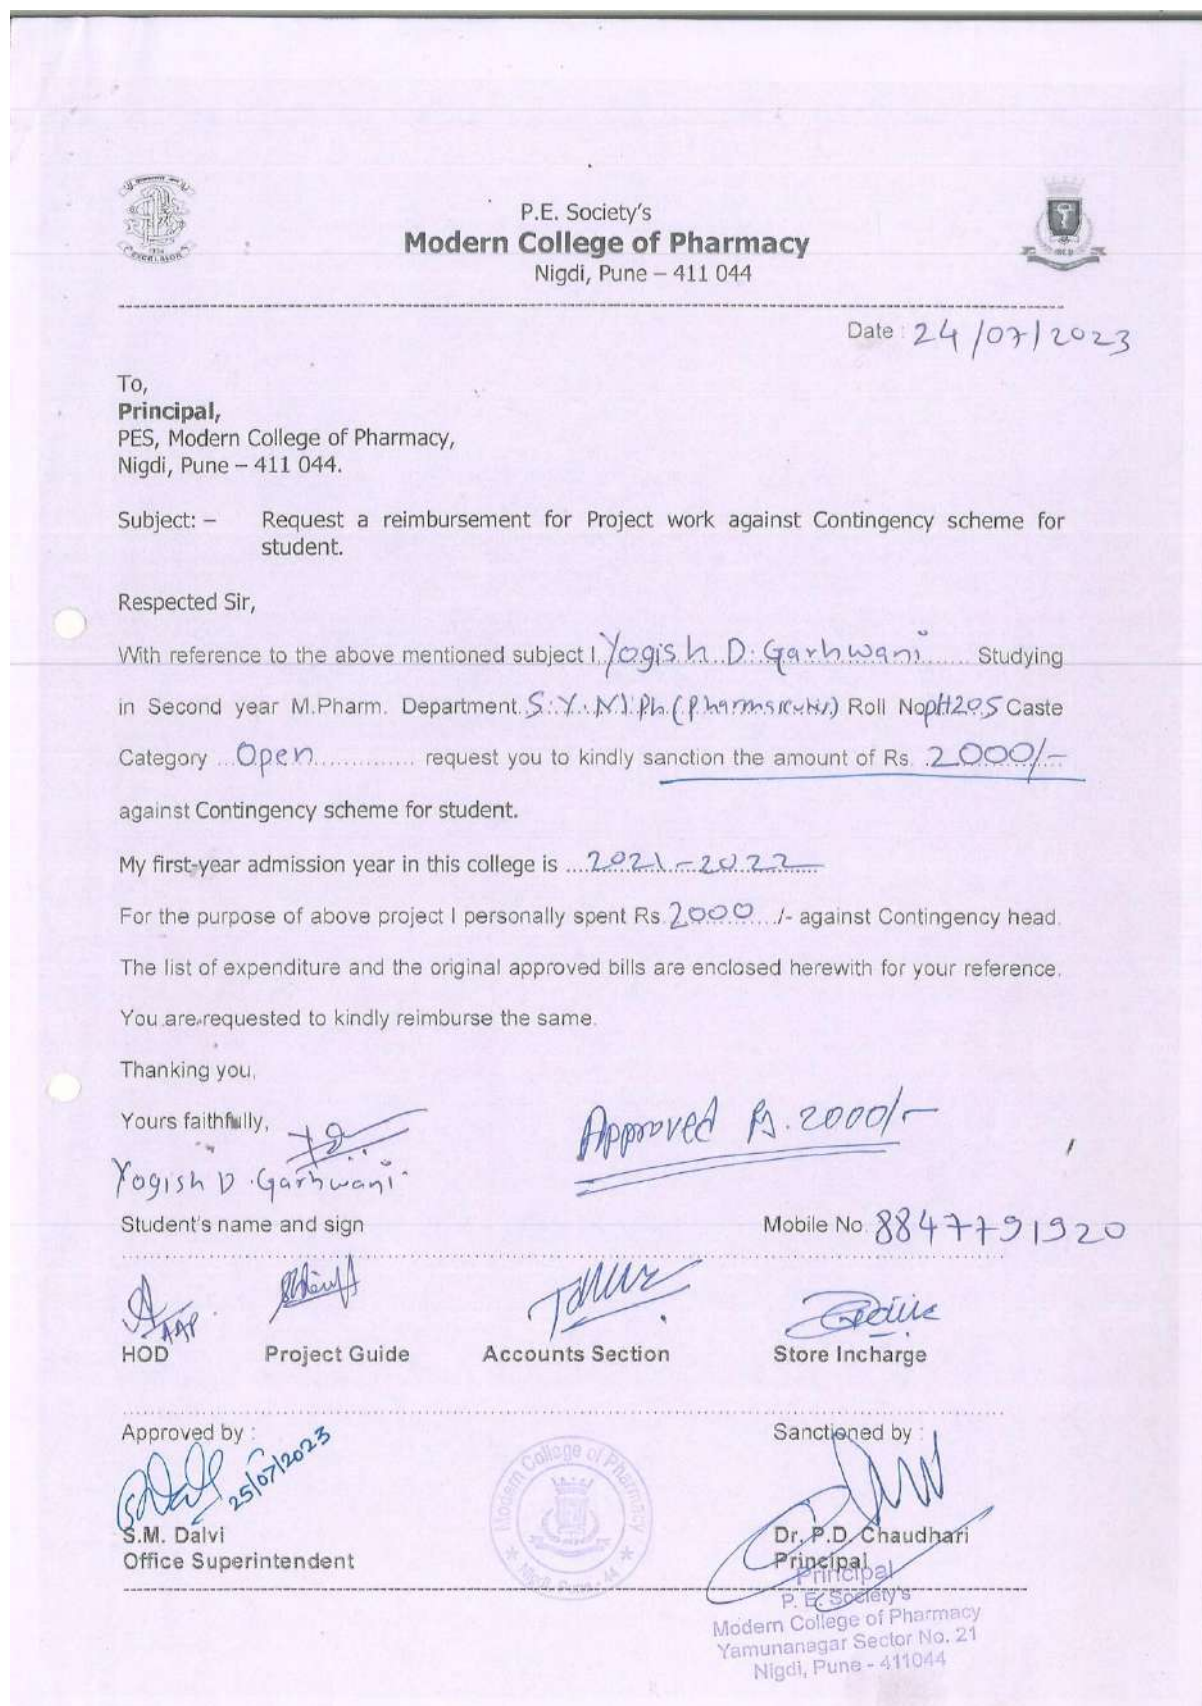 P.E. Society's
Modern College of Pharmacy
Nigdi, Pune – 411 044
Date : 24/07/2023
To,
Principal,
PES, Modern College of Pharmacy,
Nigdi, Pune – 411 044.
Subject: – Request a reimbursement for Project work against Contingency scheme for
student.
Respected Sir,
With reference to the above mentioned subject I Yogish D. Garhwani Studying
in Second year M.Pharm. Department S.Y.M.Ph (Pharmaceutics) Roll No PH205 Caste
Category ... Open .............. request you to kindly sanction the amount of Rs. 2000/-
against Contingency scheme for student.
My first-year admission year in this college is .... 2021-2022
For the purpose of above project I personally spent Rs. 2000 /- against Contingency head.
The list of expenditure and the original approved bills are enclosed herewith for your reference.
You are requested to kindly reimburse the same.
Thanking you,
Yours faithfully,
Approved Rs. 2000/-
Yogish D. Garhwani
Student's name and sign Mobile No. 8847791920
AAP
HOD Project Guide Accounts Section Store Incharge
Approved by : Sanctioned by :
25/07/2023
S.M. Dalvi Dr. P.D. Chaudhari
Office Superintendent Principal
Modern College of Pharmacy
Nigdi, Pune - 44
Principal
P. E. Society's
Modern College of Pharmacy
Yamunanagar Sector No. 21
Nigdi, Pune - 411044